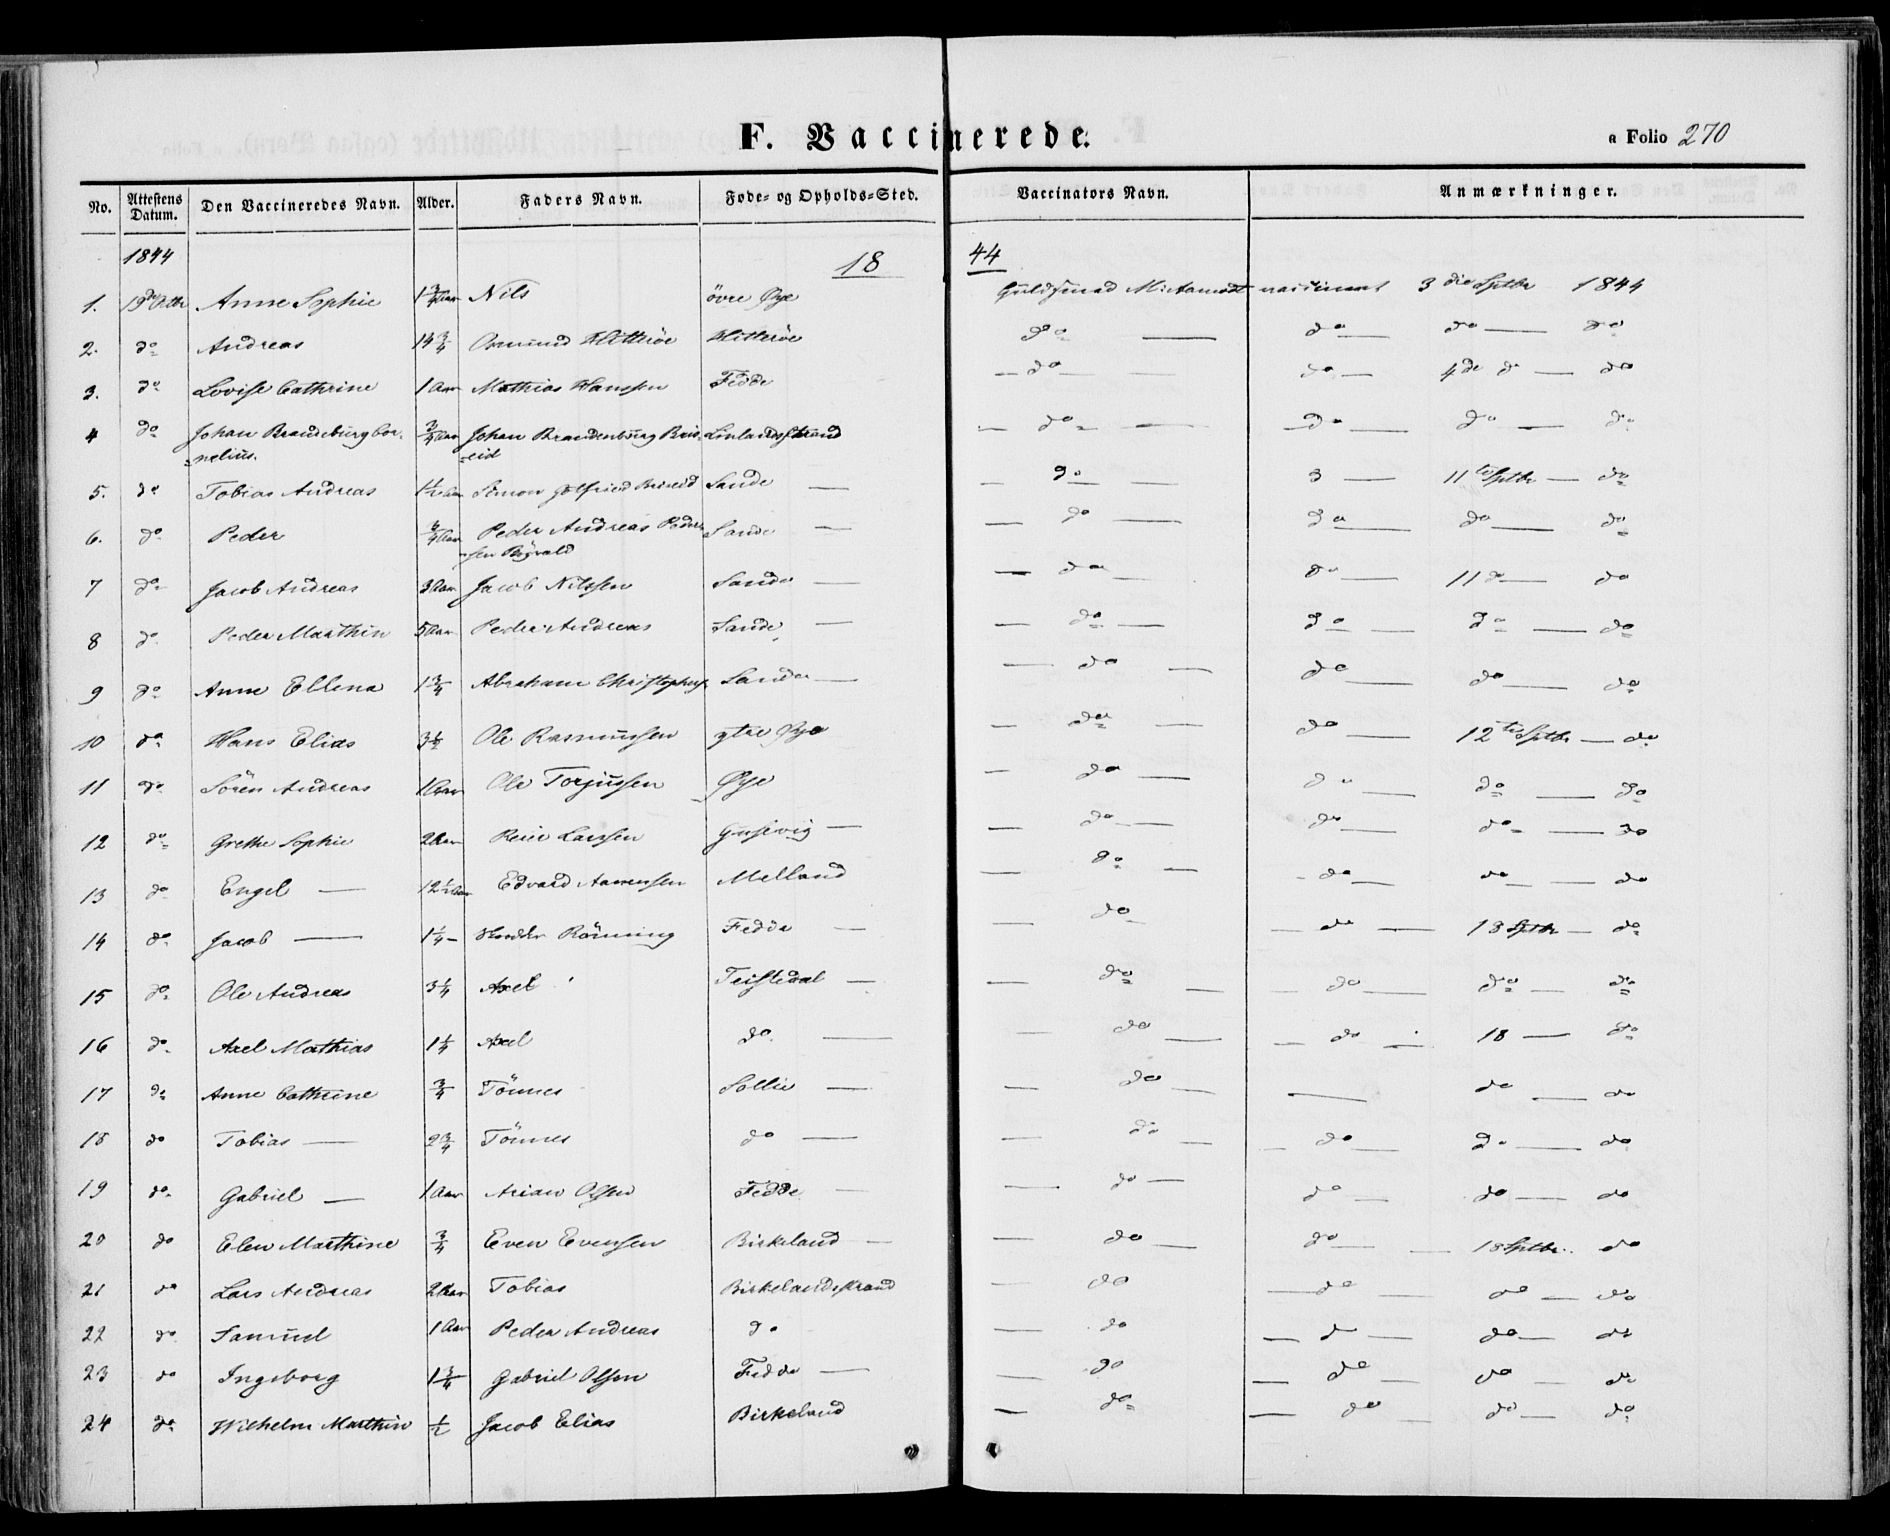 F. Vaccinerede.
a Folio 270
No. Attestens Datum. Den Vaccineredes Navn. Alder. Faders Navn. Føde- og Opholds-Sted. Vaccinators Navn. Anmærkninger.
1844 18 44
1. 19de Octbr Anne Sophie 1 3/4 Aar Nils övre Øye Guldsmed 3die Septbr 1844
2. do Andreas 14 3/4 Osmund Hitterøe Hitterøe do — do — do — do
3. do Lovise Cathrine 1 Aar Mathias Hanssen Fedde — do — do — 4de do — do
4 do Johan Brandeburg Cor- 3/4 Aar Johan Brandenburg Bris- Lenlandsstrand — do — do — do — do
nelius. eid
5. do Tobias Andreas 1 1/2 Aar Simon Gotfried Briseid Sande — — do — 11te Septbr — do
6. do Peder 3/4 Aar Peder Andreas Peder- Sande — — do — do — do — do
sen Røyvald
7 do Jacob Andreas 3 Aar Jacob Nilssen Sande — — do — do — 11 do — do
8 do Peder Marthin 5 Aar Peder Andreas Sande — — do — do — do — do
9 do Anne Ellena 1 3/4 Abraham Christophers. Sande — — do — do — do — do
10 do Hans Elias 3 1/2 Ole Rasmussen ytre Øye — do — do — 12te Septbr — do
11 do Sören Andreas 1 Aar Ole Torjussen Øye — do — do — do — do
12 do Grethe Sophie 2 Aar Reier Larssen Gusevig — — do — do — do — do
13 do Engel — 12 1/2 Aar Edvard Aanensen Melland — do — do — do — do
14 do Jacob — 1 1/4 Rönning Fedde — — do — do — 13 Septbr — do
15 do Ole Andreas 3 1/4 Axel Teistedal — — do — do — do — do
16 do Axel Mathias 1 1/4 Axel do — — do — do — 18 — do
17 do Anne Cathrine 3/4 Tönnes Sollie — — do — — do — do
18 do Tobias — 2 3/4 Tönnes do — — do — do — do — do
19 do Gabriel — 1 Aar Arian Olsen Fedde — — do — do — do — do
20 do Elen Marthine 3/4 Even Evensen Birkeland — — do — do — 18 Septbr. do
21 do Lars Andreas 2 Aar Tobias Birkelandsstrand do — do — do — do
22 do Samuel 1 Aar Peder Andreas do — do — do — do — do
23 do Ingeborg 1 3/4 Gabriel Olsen Fedde — — do — do — do — do
24 do Wilhelm Marthin 1/2 Jacob Elias Birkeland — do — do — do — do